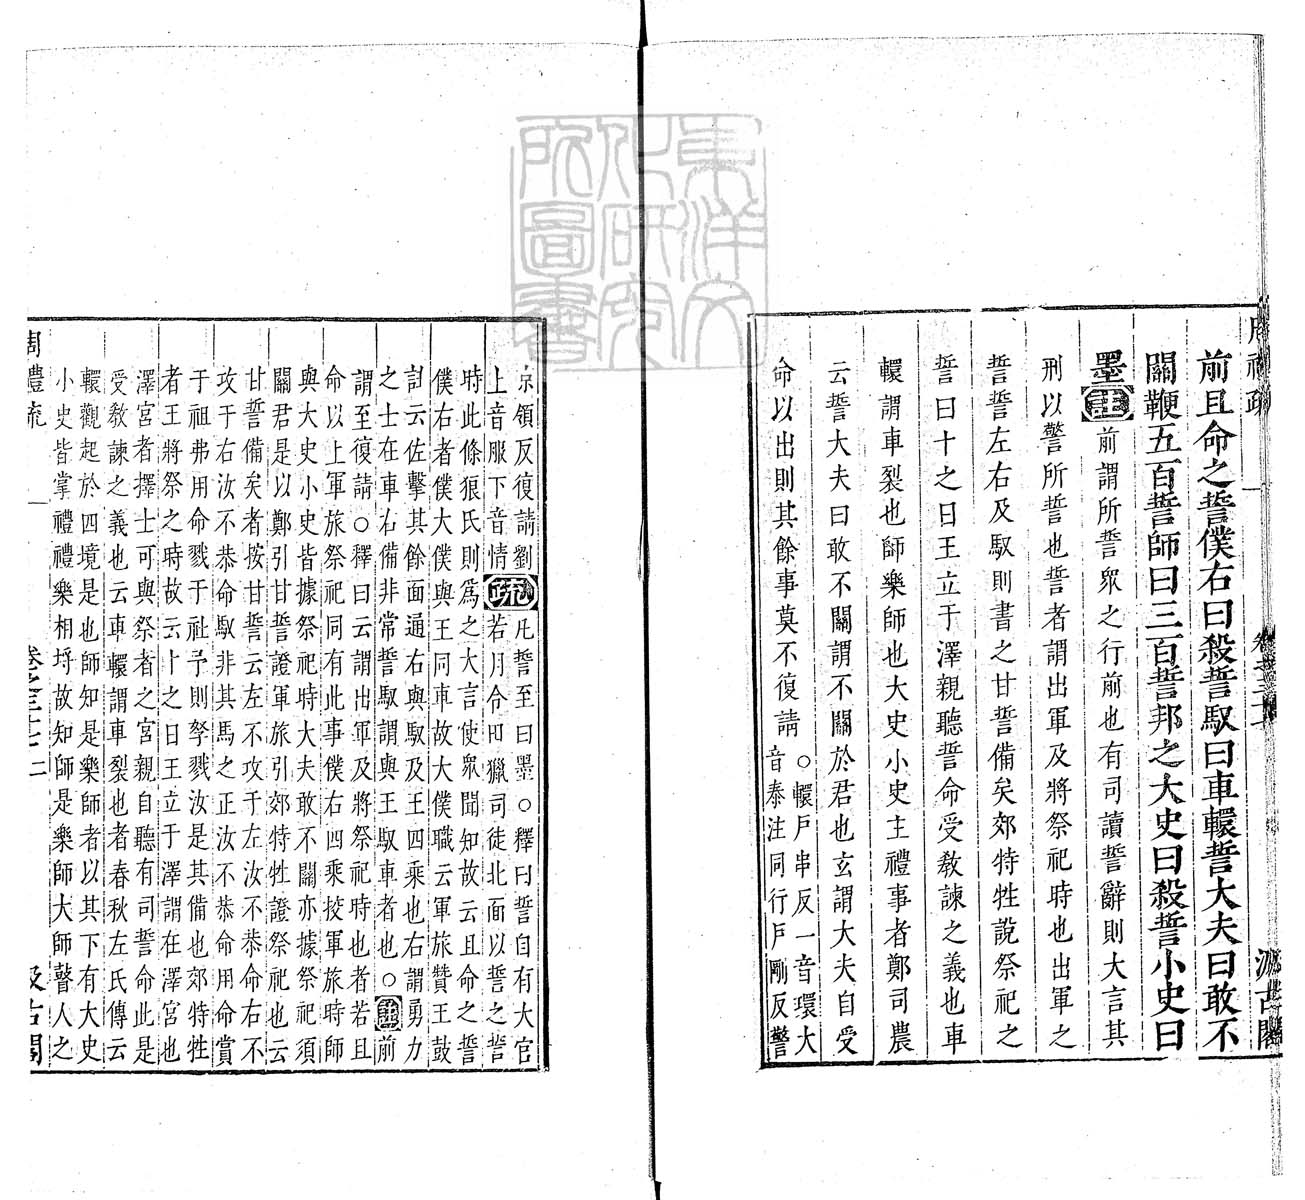 前且命之誓僕右曰殺誓馭曰車轘誓大夫曰敢不
關鞭五百誓師曰三百誓邦之大史曰殺誓小史曰
墨注前謂所誓眾之行前也有司讀誓辭則大言其
刑以警所誓也誓者謂出軍及將祭祀時也出軍之
誓誓左右及馭則書之甘誓備矣郊特牲說祭祀之
誓曰十之日王立于澤親聽誓命受敎諫之義也車
轘謂車裂也師樂師也大史小史主禮事者鄭司農
云誓大夫曰敢不關謂不關於君也玄謂大夫自受
命以出則其餘事莫不復請
○轘戶串反一音環大
音泰注同行戶剛反警
京領反復請劉
上音服下音情
疏
凡誓至曰墨○釋曰誓自有大官
若月令田獵司徒北面以誓之誓
時此條狼氏則爲之大言使眾聞知故云且命之誓
僕右者僕大僕與王同車故大僕職云軍旅贊王鼓
訃云佐擊其餘面通右與馭及王四乘也右謂勇力
之士在車右備非常誓馭謂與王馭車者也○注前
謂至復請○釋曰云謂出軍及將祭祀時也者若且
命以上軍旅祭祀同有此事僕右四乘挍軍旅時師
與大史小史皆據祭祀時大夫敢不關亦據祭祀須
關君是以鄭引甘誓證軍旅引郊特牲證祭祀也云
甘誓備矣者按甘誓云左不攻于左汝不恭命右不
攻于右汝不恭命馭非其馬之正汝不恭命用命賞
于祖弗用命戮于社予則孥戮汝是其備也郊特牲
者王將祭之時故云十之日王立于澤謂在澤宮也
澤宮者擇士可與祭者之宮親自聽有司誓命此是
受敎諫之義也云車轘謂車裂也者春秋左氏傳云
轘觀起於四境是也師知是樂師者以其下有大史
小史皆掌禮禮樂相埓故知師是樂師大師瞽人之
汲古閣